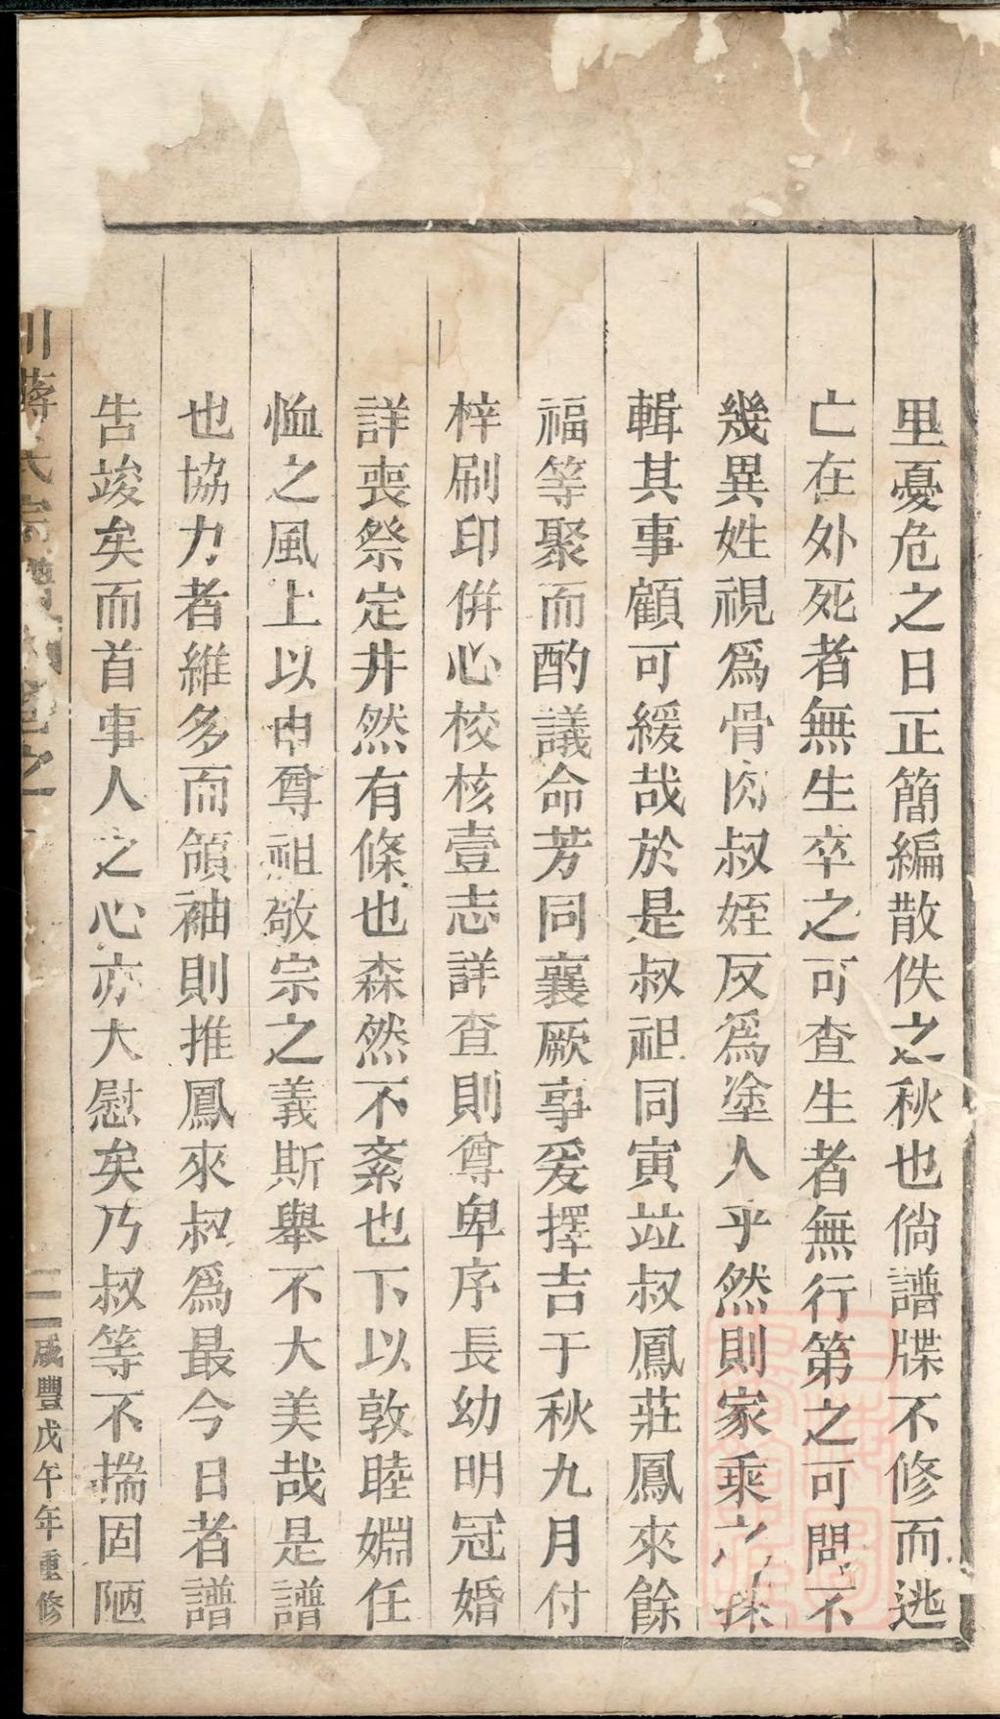 里憂危之日正簡編散佚之秋也倘譜牒不修而逃
亡在外死者無生卒之可查生者無行第之可問不
幾異姓視爲骨肉叔姪反爲塗人乎然則家乘之採
輯其事顧可緩哉於是叔祖同寅竝叔鳳莊鳳來餘
福等聚而酌議命芳同襄厥事爰擇吉于秋九月付
梓刷印併心校核壹志詳查則尊卑序長幼明冠婚
詳喪祭定井然有條也森然不紊也下以敦睦婣任
恤之風上以申尊祖敬宗之義斯舉不大美哉是譜
也協力者維多而領袖則推鳳來叔爲最今日者譜
告竣矣而首事人之心亦大慰矣乃叔等不揣固陋
川蔣氏宗譜 卷之一 二 咸豐戊午年重修